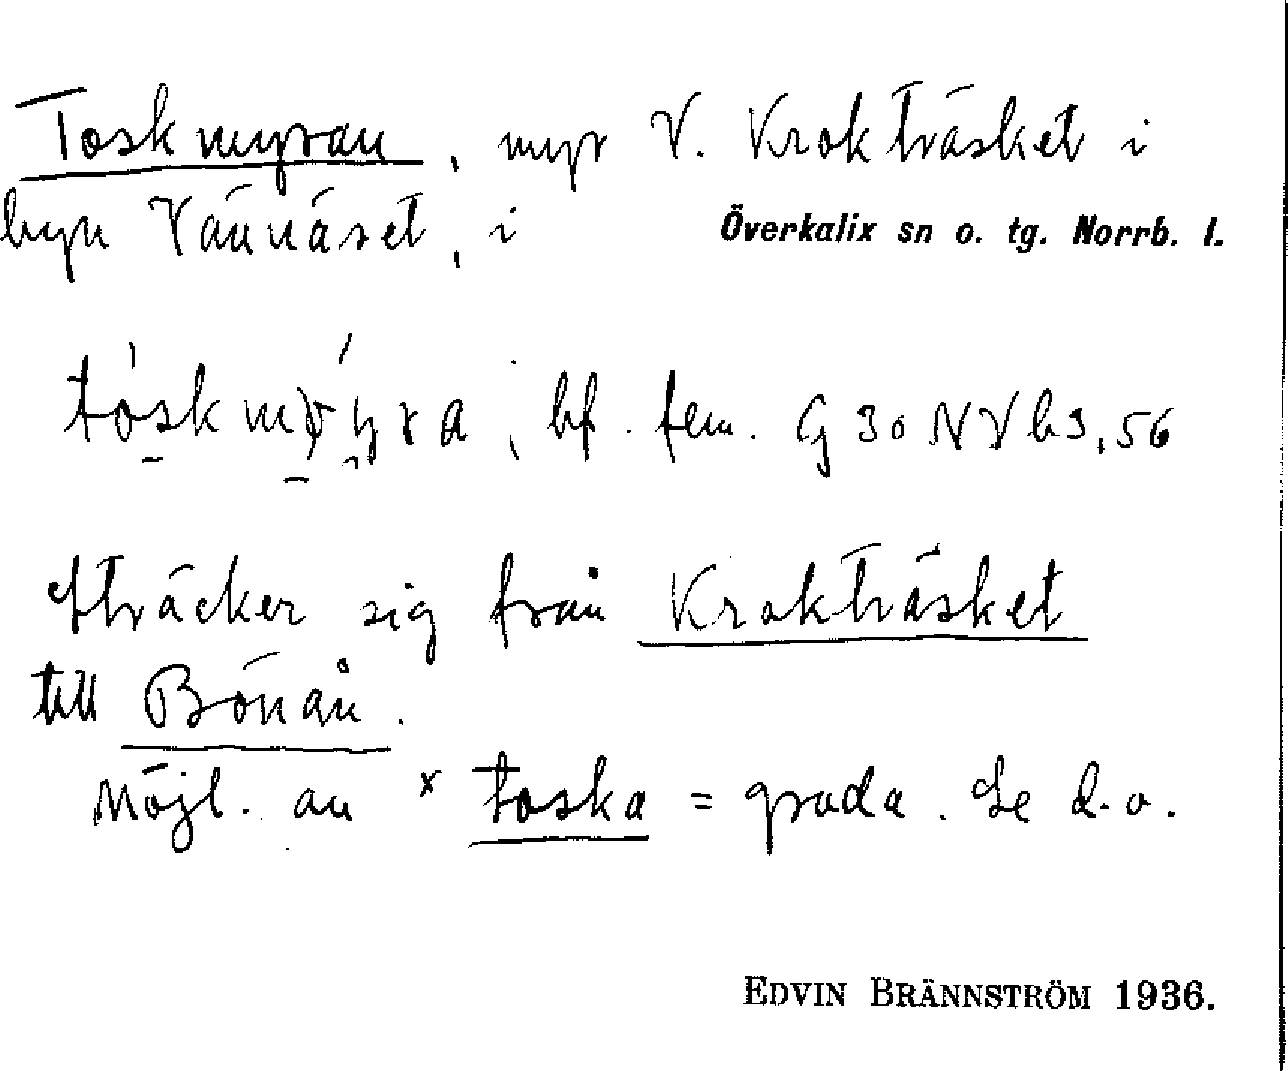 Toskmyran, myr V. Krokträsket i
byn Vännäset, i Överkalix sn o. tg. Norrb. l.
bf. fem. G 30 N V b3,56
sträcker sig från Krokträsket
till Bönån.
Möjl. av × toska = groda. Se d.o.
EDVIN BRÄNNSTRÖM 1936.